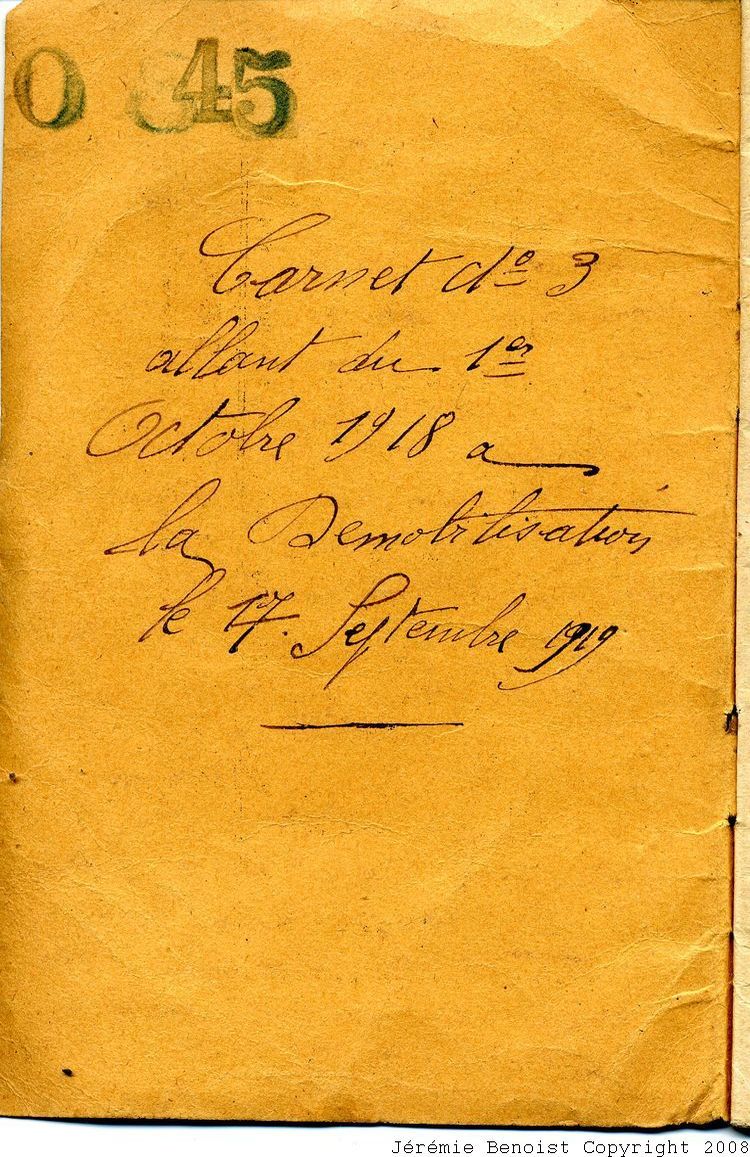 O 45
Carnet nº 3
allant du 1er
Octobre 1918 a
la Demobilisation
le 17. Septembre 1919
Jérémie Benoist Copyright 2008